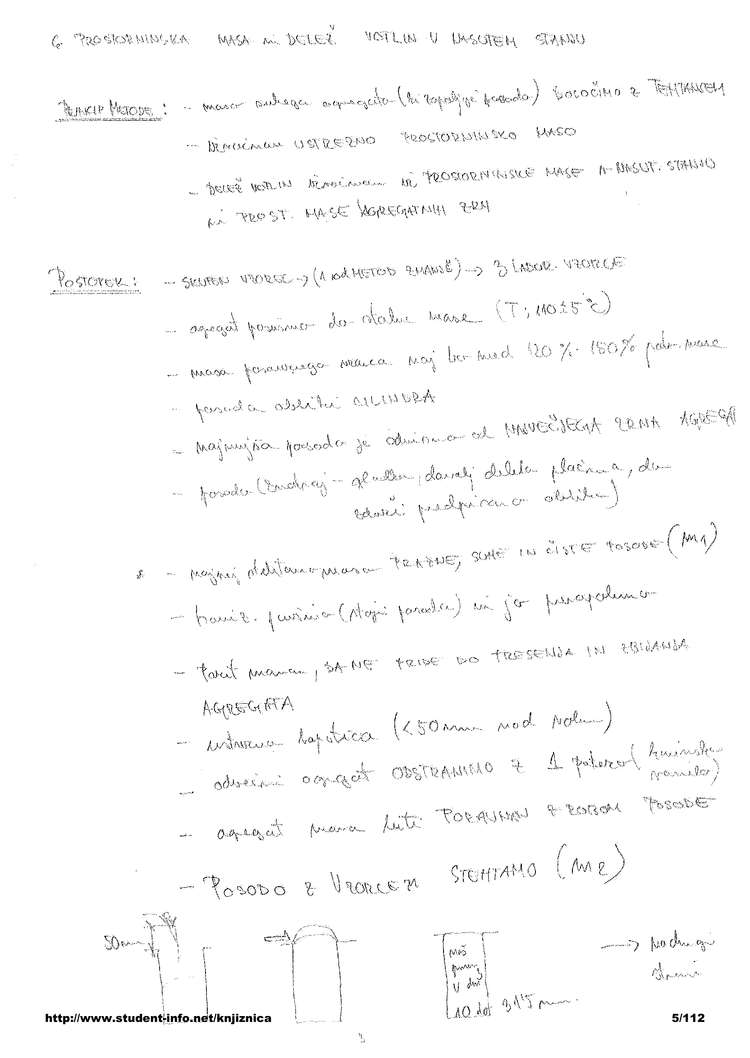 6. PROSTORNINSKA MASA in DELEŽ VOTLIN V NASUTEM STANJU
PRINCIP METODE: - masa suhega agregata (ki zapolnjuje posodo) DOLOČIMO Z TEHTANJEM
- Izračunam USTREZNO PROSTORNINSKO MASO
- DELEŽ VOTLIN izračunam iz PROSTORNINSKE MASE A-NASUT. STANJU
in PROST. MASE AGREGATNIH ZRN
POSTOPEK: - SKUPEN VZOREC -> (1 od METOD ZMANJŠ) -> 3 LABOR. VZORCE
- agregat posušimo do stalne mase (T; 110±5°C)
- masa posameznega vzorca naj bo med 120% - 150% potr. mase
- posoda oblike CILINDRA
- Najmanjša posoda je odvisna od NAJVEČJEGA ZRNA AGREGA
- posoda (znotraj - gladka, dovolj debela pločevina, da
zdrži predpisano obliko)
- najprej stehtamo maso PRAZNE, SUHE IN ČISTE POSODE (m1)
- horiz. površina (stoji posoda) in jo prenapolnimo
- Pazit moramo, DA NE PRIDE DO TRESENJA IN ZBIJANJA
AGREGATA
- ustrezna lopatica (<50mm nad robom)
- odvečni agregat ODSTRANIMO Z 1 potezo (kovinsko
ravnilo)
- agregat mora biti PORAVNAN Z ROBOM POSODE
- POSODO Z VZORCEM STEHTAMO (m2)
50mm
Naš
V dni
10 do 31'5 mm.
-> Na drugi
strani
http://www.student-info.net/knjiznica
5/112
3